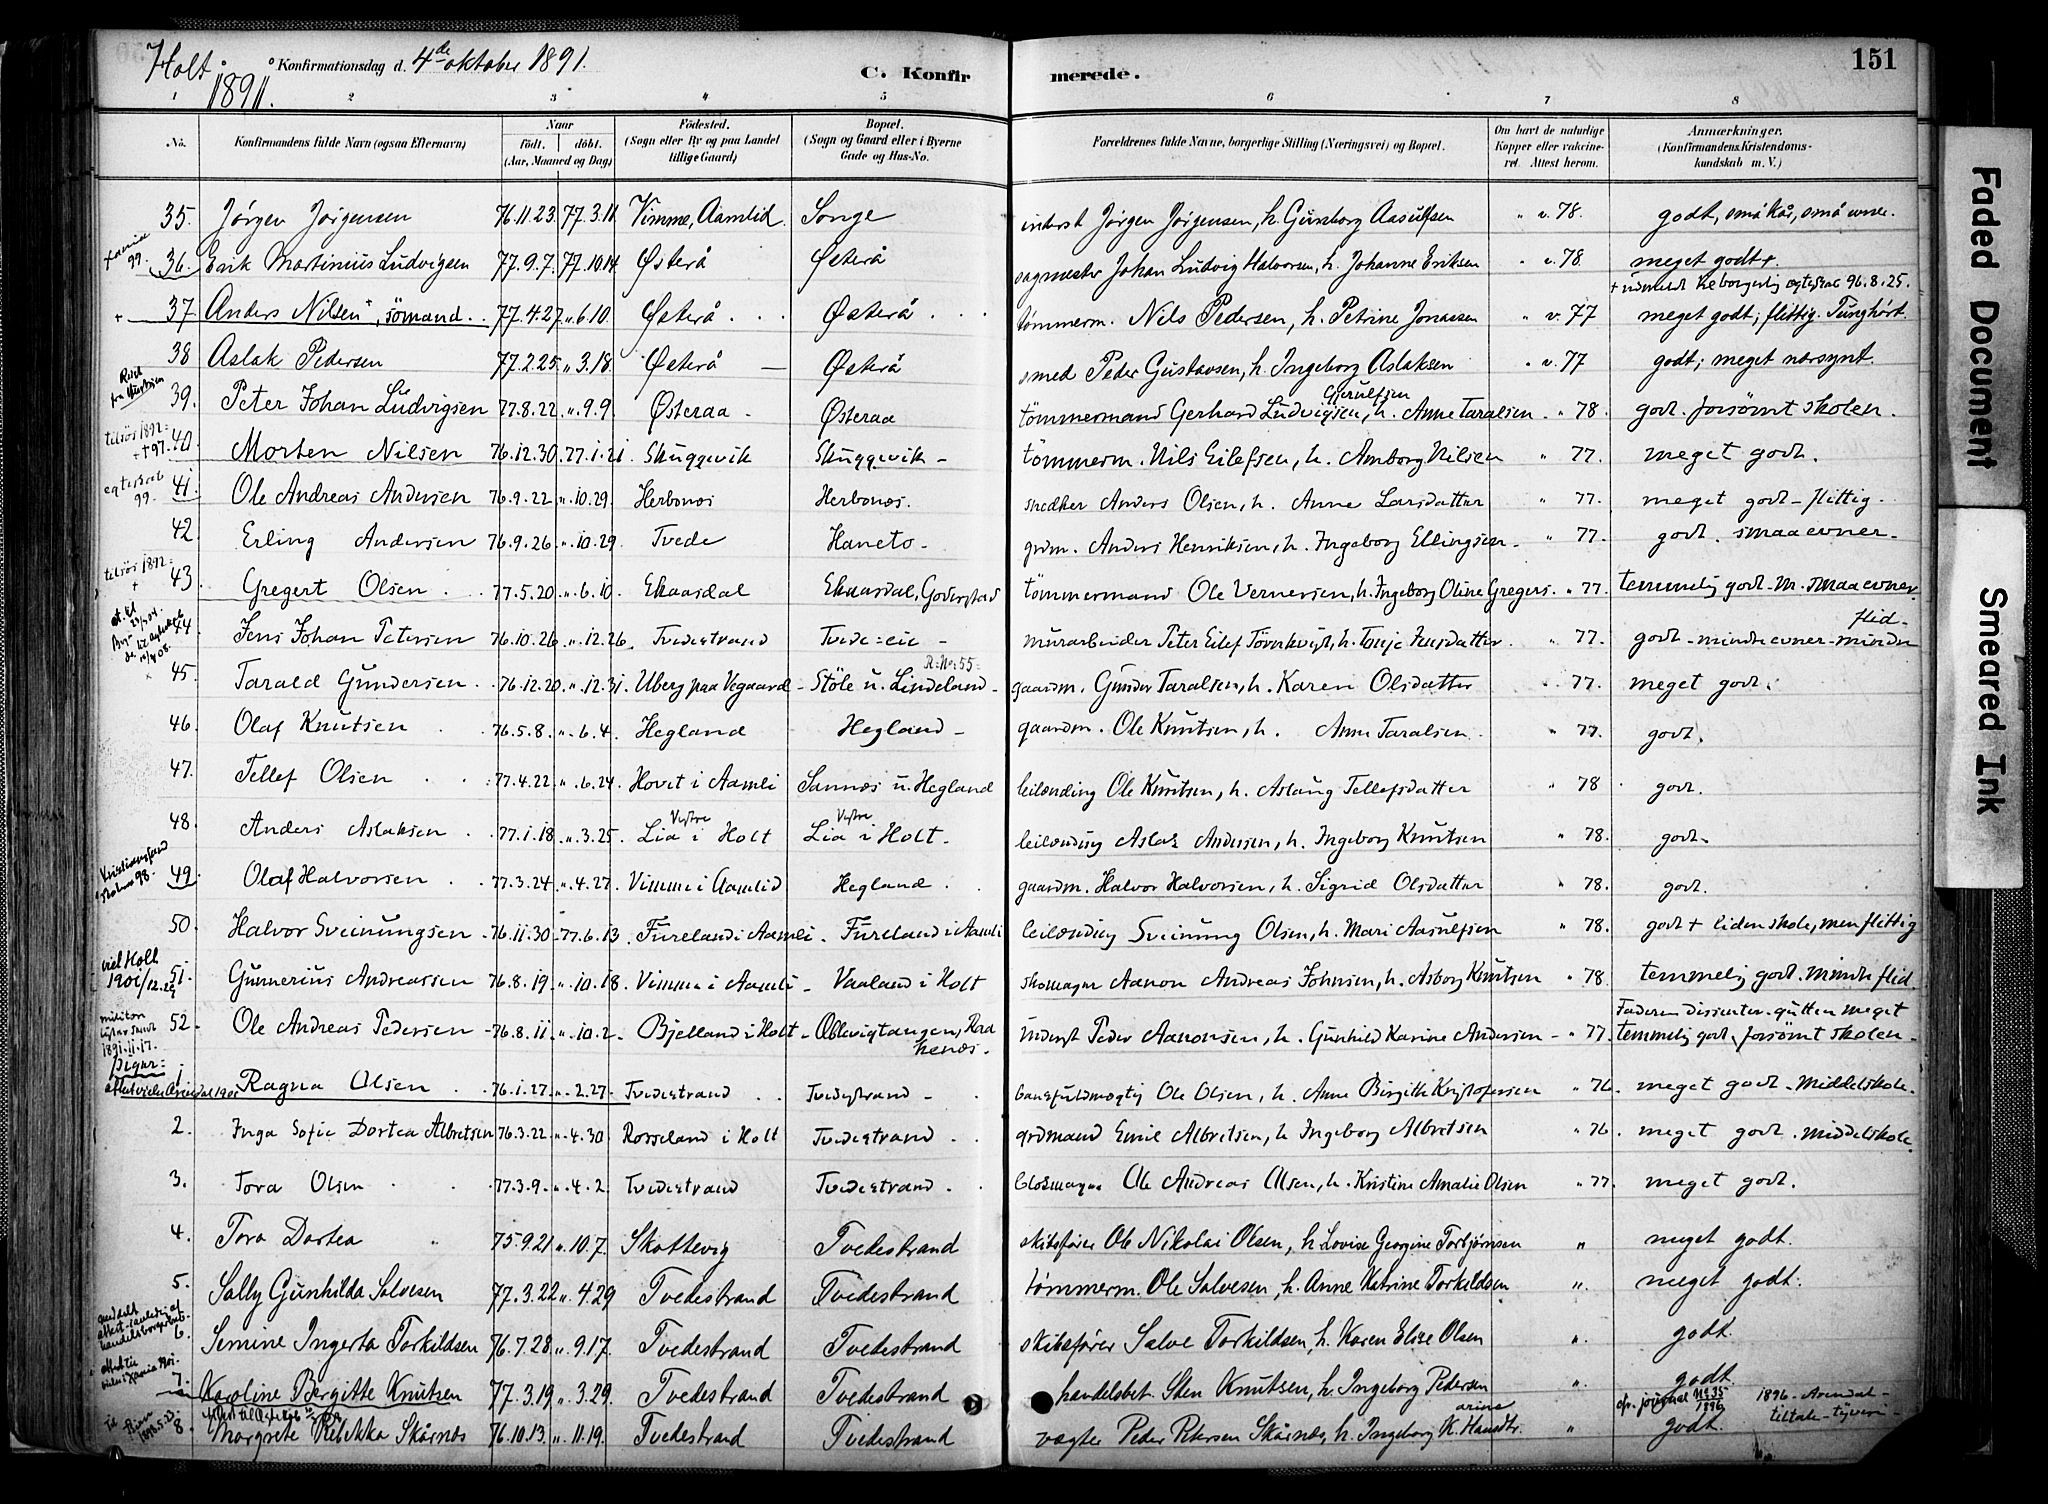 Holt. Konfirmationsdag d. 4de oktober 1891. C. Konfirmerede. 151
1891.
1 2 3 4 5 6 7 8
No. Konfirmandens fulde Navn (ogsaa Efternavn) Naar Født. døbt. (Aar, Maaned og Dag) Fødested. (Sogn eller By og paa Landet tillige Gaard) Bopæl. (Sogn og Gaard eller i Byerne Gade og Hus-No. Forældrenes fulde Navne, borgerlige Stilling (Næringsvei) og Bopæl. Om havt de naturlige Kopper eller vakcineret. Attest herom. Anmærkninger. (Konfirmandens Kristendomskundskab m. V.)
35. Jørgen Jørgensen 76.11.23. 77.3.11 Vimme, Aamlid Songe inderst Jørgen Jørgensen, h. Gunborg Aasulfsen " v. 78. godt, småkår, små evner.
36. Erik Martinius Ludvigsen 77.9.7. 77.10.14 Østerå Østerå sagmester Johan Ludvig Halvorsen, h. Johanne Eriksen " v. 78. meget godt +.
+ udmeldt 96.8.25.
+ 37. Anders Nilsen +, sømand. 77.4.27 ". 6.10. Østerå Østerå tømmerm. Nils Pedersen, h. Petrine Jonassen " v. 77 meget godt; flittig. Tunghørt.
38 Aslak Pedersen 77.2.25. ". 3.18. Østerå Østerå smed Peder Gustavsen, h. Ingeborg Aslaksen " v. 77 godt; meget nærsynt.
39. Peter Johan Ludvigsen 77.8.22. ". 9.9. Østeraa Østeraa tømmermand Gerhard Ludvigsen, h. Anne Taralsen " 78. godt. forsømt skolen.
40. Morten Nilsen 76.12.30. 77.1.21. Skuggevik Skuggevik tømmerm. Nils Eilefsen, h. Amborg Nilsen " 77. meget godt.
41. Ole Andreas Andersen 76.9.22. ". 10.29. Herbonæs Herbonæs. snedker Anders Olsen, h. Anne Larsdatter " 77. meget godt - flittig.
42. Erling Andersen 76.9.26. ". 10.29. Tvede Haneto grdm. Anders Henriksen, h. Ingeborg Ellingsen " 77. godt. smaaevner.
43. Gregert Olsen 77.5.20. ". 6.10. Ekaasdal Ekaasdal, Goderstad tømmermand Ole Vernersen, h. Ingeborg Oline Gregers. " 77. temmelig godt. M. smaaevner.
44. Jens Johan Petersen 76.10.26. ". 12.26. Tvedestrand Tvede=eie murarbeider Peter Eilef Törnkvist, h. " 77. godt - mindre evner - mindre flid -
45. Tarald Gundersen 76.12.20. ". 12.31. Uberg paa Vegaard Støle u. Lindeland gaardm. Gunder Taralsen, h. Karen Olsdatter 77. meget godt.
46. Olaf Knutsen 76.5.8. ". 6.4. Hegland Hegland gaardm. Ole Knutsen, h. Anne Taralsen " 77. godt.
47. Tellef Olsen 77.4.22. ". 6.24. Hovet i Aamli Sannæs u. Hegland leilænding Ole Knutsen, h. Aslaug Tellefsdatter " 78 godt.
48. Anders Aslaksen 77.1.18. ". 3.25. Vestre Lia i Holt Vestre Lia i Holt. leilænding Aslak Andersen, h. Ingeborg Knutsen " 78. godt.
49. Olaf Halvorsen 77.3.24. ". 4.27. Vimme i Aamlid Hegland. gaardm. Halvor Halvorsen, h. Sigrid Olsdatter " 78. godt.
50. Halvor Sveinungsen 76.11.30. 77.6.13. Fureland i Aamli Fureland i Aamli leilænding Sveinung Olsen, h. Mari Aasulfsen " 78. godt + liden skole, men flittig
viet Holt 1901/12.
51. Gunnerius Andreassen 76.8.19. ". 10.18. Vimme i Aamli Vaaland i Holt skomager Aanon Andreas Johnsen, h. Asborg Knutsen " 78. temmelig godt. Mindre flid
Faderen dissenter - gutten meget
52. Ole Andreas Pedersen 76.8.11. ". 10.2. Bjelland i Holt Oblevigtangen, inderst Peder Aanonsen, h. Gunhild Karine Andersen " 77. temmelig godt, forsømt skolen.
piger:
1 Ragna Olsen 76.1.27. ". 2.27. Tvedestrand Tvedestrand Ole Olsen, h. Anne Birgitte Kristofersen " 76. meget godt. Middelskole.
2. Inga Sofie Dortea Albretsen 76.3.22. ". 4.30 Rosseland i Holt Tvedestrand grdmand Emil Albretsen, h Ingeborg Albretsen " 76. meget godt. Middelskole.
3. Tora Olsen 77.3.9. ". 4.2. Tvedestrand Tvedestrand. blokmager Ole Andreas Olsen, h. Kristine Amalie Olsen " 77. meget godt.
4. Tora Dortea " 75.9.21. ". 10.7. Skottevig Tvedestrand skibsfører Ole Nikolai Olsen, h Lovise Georgine Torbjørnsen " meget godt.
5. Sally Gunhilda Salvesen 77.3.22 ". 4.29 Tvedestrand Tvedestrand tømmerm. Ole Salvesen, h. Anne Katrine Torkildsen " meget godt.
6. Semine Ingerta Torkildsen 76.7.28. ". 9.17. Tvedestrand Tvedestrand skibsfører Salve Torkildsen, h. Karen Elise Olsen " godt.
7. Karoline Bergitte Knutsen 77.3.19. ". 3.29. Tvedestrand Tvedestrand handelsbet. Sten Knutsen, h. Ingeborg Pedersen " godt.
cfr. journal No. 35 1896 1896 - Arendal - tiltalt - tyveri -
8. Margrete Rebekka Skårnæs 76.10.13. ". 11.19. Tvedestrand Tvedestrand vægter Peder Petersen Skårnæs, h. Ingeborg Karine Hansdtr. " godt.
Faded Document
Smeared Ink